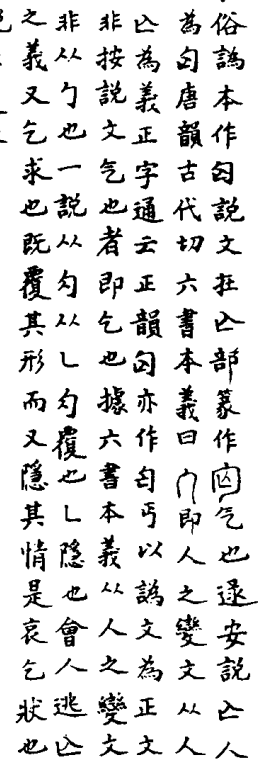 俗譌本作匃說文在亾部篆作気也逯安說亾人
為匃唐韻古代切六書本義曰即人之變文从人
亾為義正字通云正韻匃亦作匄丐以譌文為正文
非按說文气也者即乞也據六書本義从人之變文
非从勹也一說从勹从乚勹覆也乚隱也會人逃亾
之義又乞求也既覆其形而又隱其情是哀乞狀也